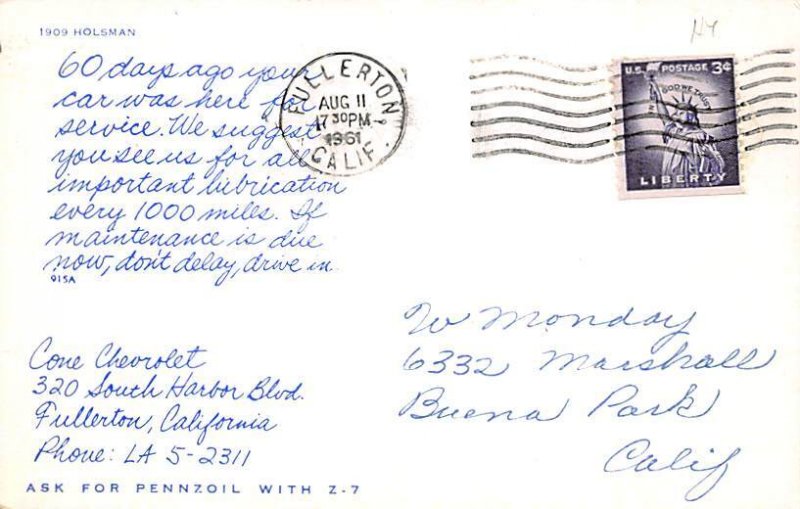 1909 HOLSMAN
60 days ago your
car was here for
service. We suggest
you see us for all
important lubrication
every 1000 miles. If
maintenance is due
now, don't delay, drive in.
915A
Cone Chevrolet
320 South Harbor Blvd.
Fullerton, California
Phone: LA 5-2311
ASK FOR PENNZOIL WITH Z-7
FULLERTON
AUG 11
730 PM
1961
CALIF.
NY
U.S. POSTAGE 3¢
IN GOD WE TRUST
LIBERTY
W Monday
6332 Marshall
Buena Park
Calif